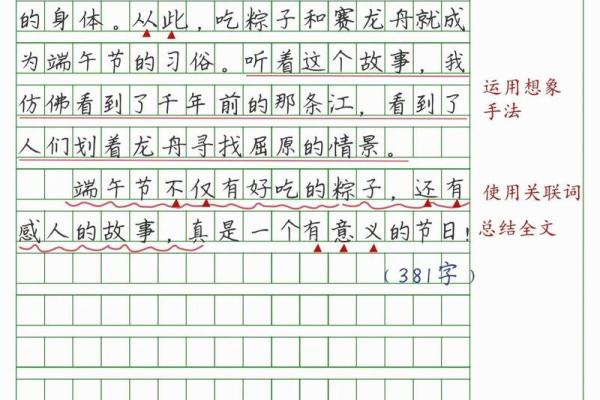 的身体。从此，吃粽子和赛龙舟就成
为端午节的习俗。听着这个故事，我
仿佛看到了千年前的那条江，看到了
人们划着龙舟寻找屈原的情景。
端午节不仅有好吃的粽子，还有
感人的故事，真是一个有意义的节日！
（381字）
运用想象
手法
使用关联词
总结全文